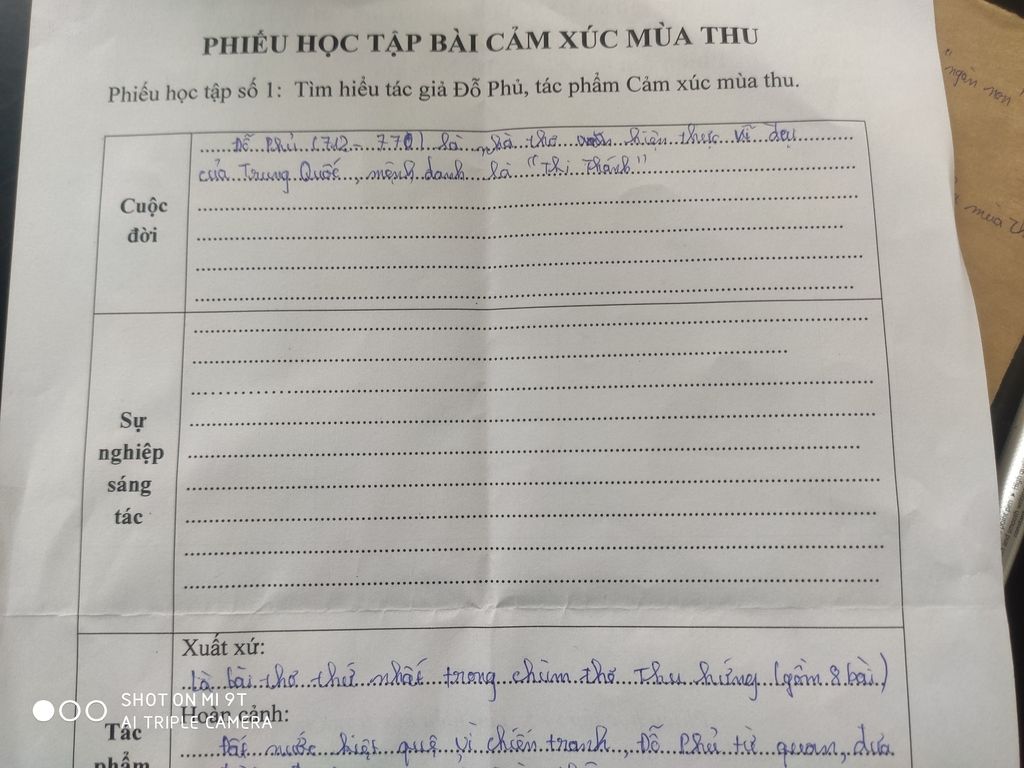 PHIẾU HỌC TẬP BÀI CẢM XÚC MÙA THU
Phiếu học tập số 1: Tìm hiểu tác giả Đỗ Phủ, tác phẩm Cảm xúc mùa thu.
Cuộc đời
Đỗ Phủ (712 - 770) là nhà thơ hiện thực vĩ đại
của Trung Quốc, mệnh danh là "Thi Thánh"
Sự nghiệp sáng tác
Tác phẩm
Xuất xứ:
Là bài thơ thứ nhất trong chùm thơ Thu hứng (gồm 8 bài)
Hoàn cảnh:
Đất nước kiệt quệ vì chiến tranh, Đỗ Phủ từ quan, đưa
"ngàn non
mùa th
SHOT ON MI 9T
AI TRIPLE CAMERA